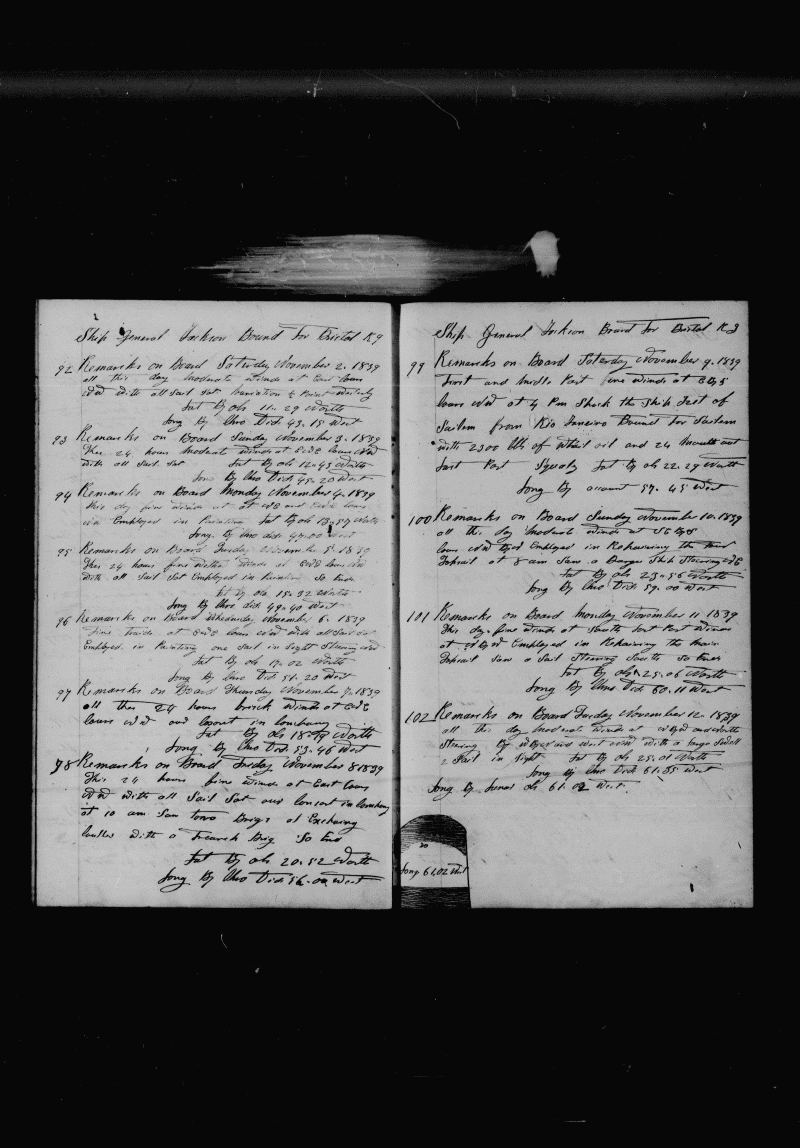 Ship General Jackson Bound for Bristol R.I
92 Remarks on Board Saterday November 2. 1839
all this day moderate winds at East Cours
WNW with all Sail Sat Variation ½ Point Westerly
Lat By obs 11.29 North
Long By Chro Dis 43.15 West
93 Remarks on Board Sunday November 3. 1839
This 24 hours Moderate winds at ENE Cours NW
with all Sail Sat Lat By obs 12.43 North
Long By Chro Dis 45.20 West
94 Remarks on Board Monday November 4. 1839
this day fine winds at and ENE Cours
NW Employed in Painting Lat By obs 13.57 North
Long By Chro Dis 47.00 West
95 Remarks on Board Tuesday November 5 1839
This 24 hours fine wether winds at ENE Cours NW
with all Sail Sat Employed in Painting So Ends
Lat By obs 15.32 North
Long By Chro Dis 49.40 West
96 Remarks on Board Whednsday November 6. 1839
fine trade at ENE Cours NW with all Sail Sat
Employed in Painting one Sail in Sight Steering
Lat By obs 17.02 North
Long By Chro Dis 51.20 West
97 Remarks on Board Thursday November 7. 1839
all this 24 hours brisk winds at ENE
Cours NW our Consort in Company
Lat By obs 18. North
Long By Chro Dis 53.46 West
98 Remarks on Board Friday November 8 1839
This 24 hours fine winds at East Cours
WNW with all Sail Sat our Consort in Company
at 10 am Saw two Brigs at
with a French Brig So End
Lat By obs 20.52 North
Long By Chro Dis 56.00 West
Ship General Jackson Bound for Bristol R.I
99 Remarks on Board Saterday November 9. 1839
First and Midle Part fine winds at E By S
Cours WNW at 4 Pm Spack the Ship of
Sailem from Rio Janeiro Bound for Sailem
with 2300 bbls of Whail oil and 24 Months out
Last Part Squaly Lat By obs 22.29 North
Long By account 57.45 West
100 Remarks on Board Sunday November 10. 1839
all this day moderate winds at SE By S
Cours NW By W Employed in Repairing the
Topsail at 8 am Saw a Large Ship Steering
Lat By obs 23.56 North
Long By Chro Dis 59.00 West
101 Remarks on Board Monday November 11. 1839
This day fine winds at South Last Part Winds
at Employed in Repairing the Main
Topsail Saw a Sail Steering South So Ends
Lat By obs 25.06 North
Long By Chro Dis 60.11 West
102 Remarks on Board Tuesday November 12. 1839
all this day Moderate winds at and North
Steering By and West with a large Swell
2 Sail in Sight Lat By obs 25.01 North
Long By Chro Dis 61.35 West
Long By Lunar obs 61.02 West
Long 61.02 West